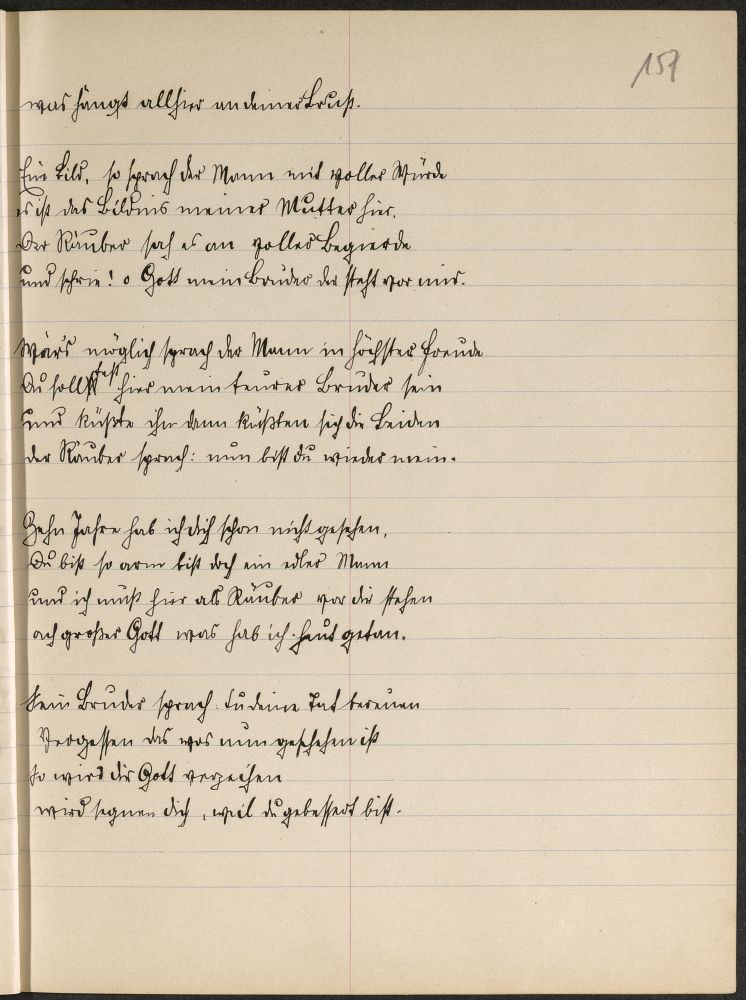 157
was hängt allhier an deiner Brust.
Ein Bild, so sprach der Mann mit voller Würde
es ist das Bildnis meiner Mutter hier.
Der Räuber sah es an voller Begierde
und schrie! o Gott mein Bruder der steht vor mir.
Wär's möglich sprach der Mann in höchster Freude
Du sollst hier mein teurer Bruder sein
und küßte ihn dann küßten sich die Beiden
der Räuber sprach: nun bist du wieder mein.
Zehn Jahre hab ich dich schon nicht gesehen,
Du bist so arm bist doch ein edler Mann
und ich muß hier als Räuber vor dir stehen
ach großer Gott was hab ich heut getan.
Sein Bruder sprach: tu deine Tat bereuen
Vergessen das was nun geschehen ist
So wird dir Gott verzeihen
wird segnen dich, weil du gebessert bist.